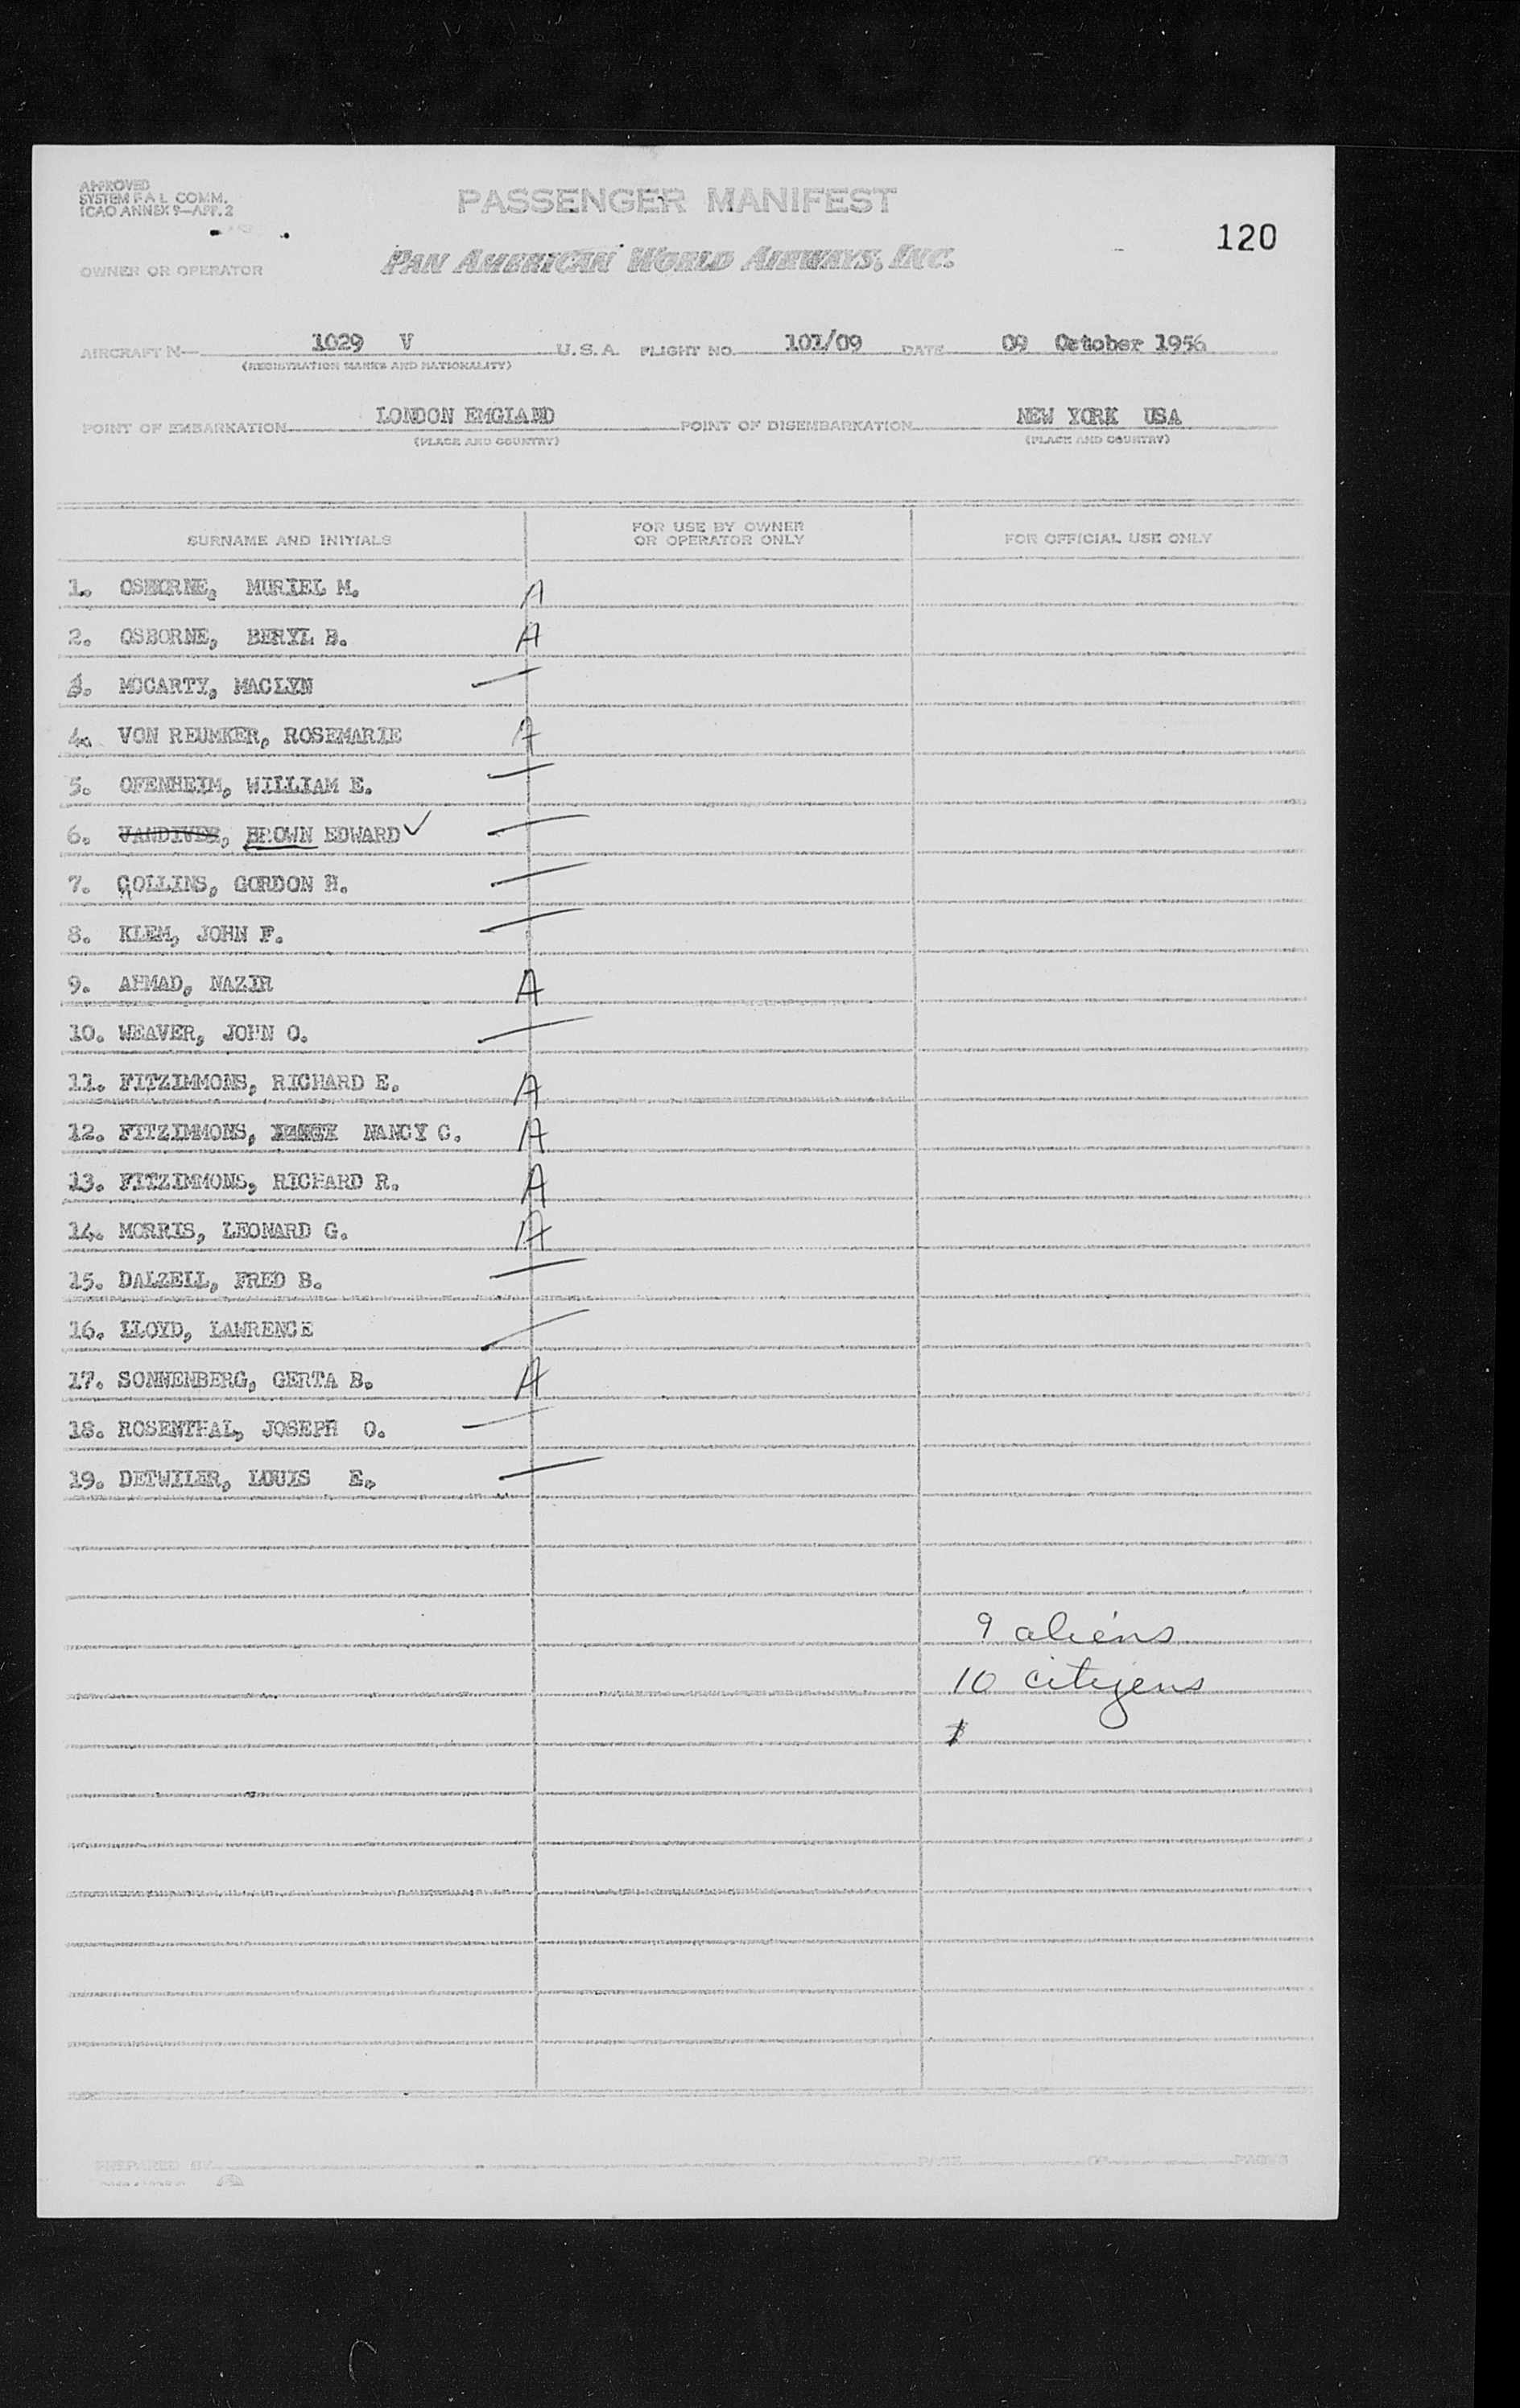 APPROVED
SYSTEM F A L COMM.
ICAO ANNEX 9—APP. 2
PASSENGER MANIFEST
120
OWNER OR OPERATOR
PAN AMERICAN WORLD AIRWAYS, INC.
AIRCRAFT N— 1029 V U. S. A. FLIGHT NO. 101/09 DATE 09 October 1956
(REGISTRATION MARKS AND NATIONALITY)
POINT OF EMBARKATION LONDON EMGLAND POINT OF DISEMBARKATION NEW YORK USA
(PLACE AND COUNTRY) (PLACE AND COUNTRY)
SURNAME AND INITIALS FOR USE BY OWNER OR OPERATOR ONLY FOR OFFICIAL USE ONLY
1. OSBORNE, MURIEL M. A
2. OSBORNE, BERYL B. A
3. MCCARTY, MACLYN
4. VON REUMKER, ROSEMARIE A
5. OFENHEIM, WILLIAM E.
6. VANDIVER, BROWN EDWARD ✓
7. COLLINS, GORDON H.
8. KLEM, JOHN F.
9. AHMAD, NAZIR A
10. WEAVER, JOHN O.
11. FITZIMMONS, RICHARD E. A
12. FITZIMMONS, NANCY C. A
13. FITZIMMONS, RICHARD R. A
14. MORRIS, LEONARD G. A
15. DALZELL, FRED B.
16. LLOYD, LAWRENCE
17. SONNENBERG, GERTA B. A
18. ROSENTHAL, JOSEPH O.
19. DETWILER, LOUIS E.
9 aliens
10 citizens
PREPARED BY PAGE OF PAGES